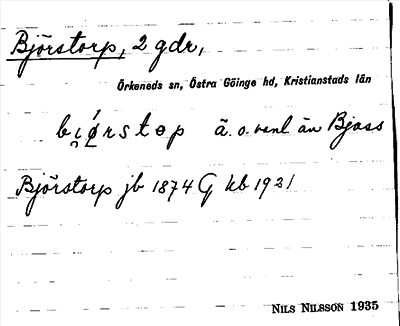 Björstorp, 2 gdr,
Örkeneds sn, Östra Göinge hd, Kristianstads län
bi̯ǿrstɵp ä. o. vanl än Bjoss
Björstorp jb 1874 G kb 1921
NILS NILSSON 1935